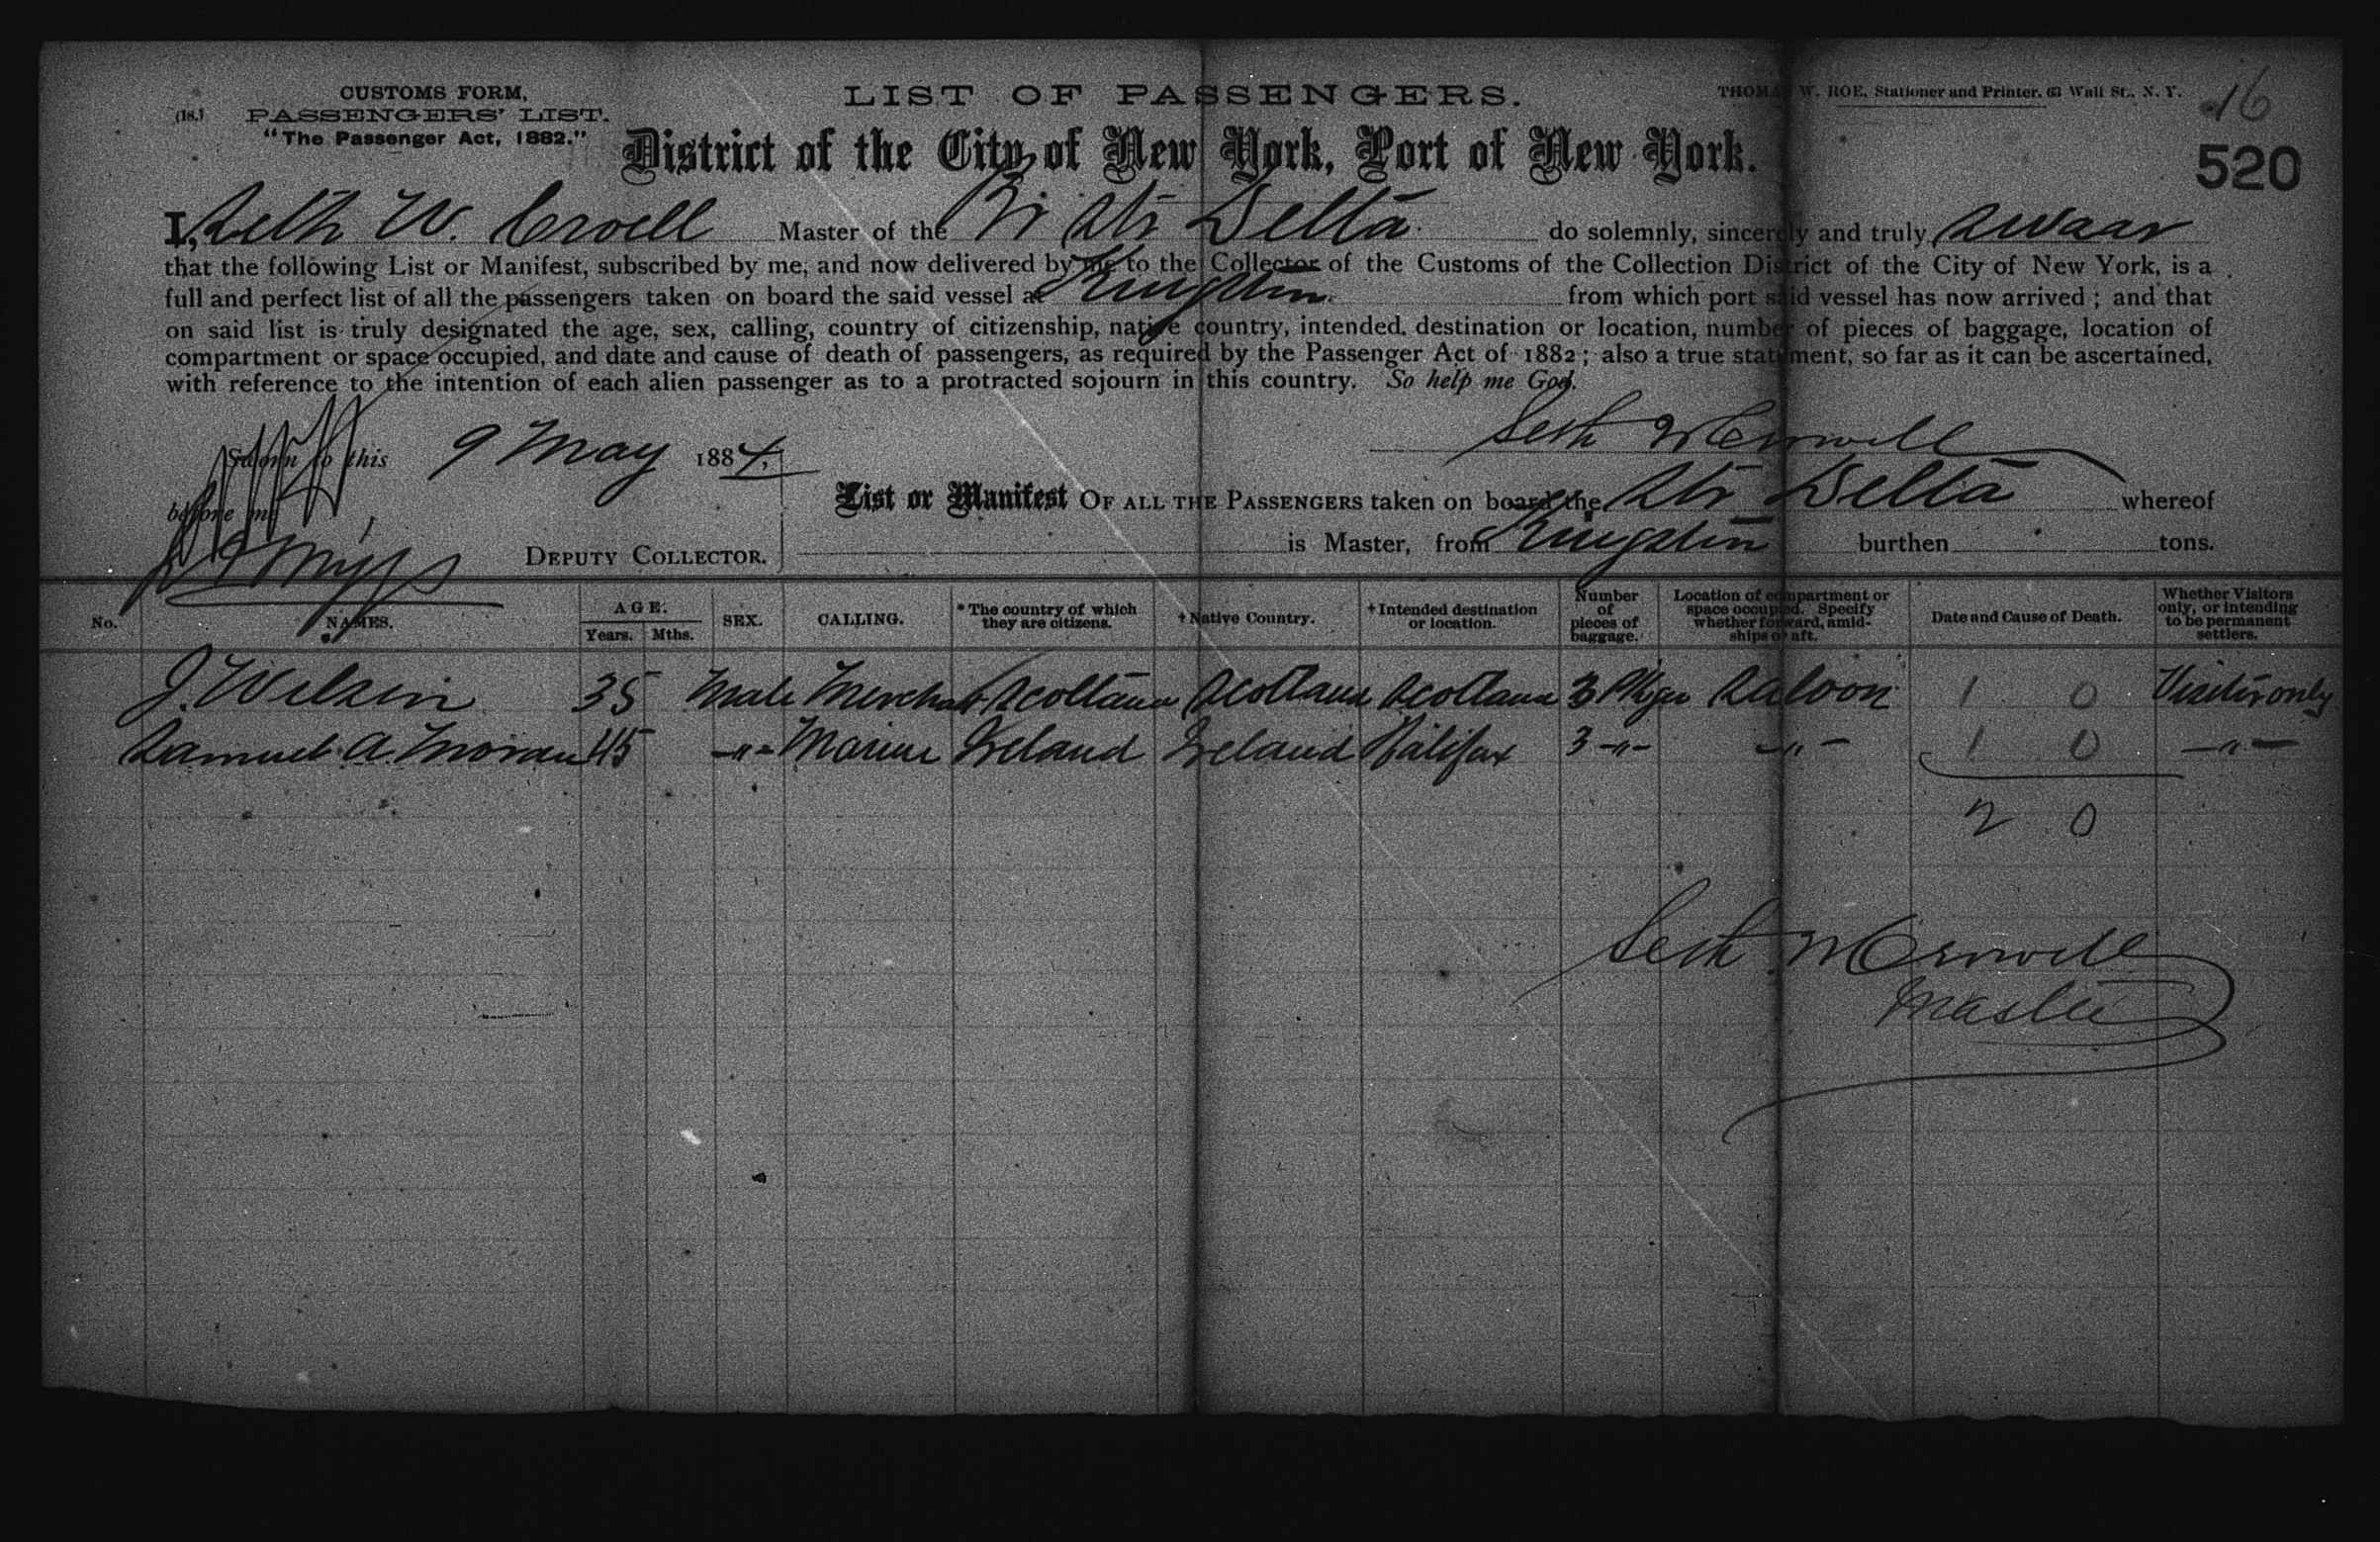 CUSTOMS FORM,
(18.) PASSENGERS' LIST.
"The Passenger Act, 1882."
LIST OF PASSENGERS.
THOMAS W. ROE, Stationer and Printer, 63 Wall St., N. Y.
16
520
District of the City of New York, Port of New York.
I, Seth W. Crowell Master of the Br Str Delta do solemnly, sincerely and truly swear
that the following List or Manifest, subscribed by me, and now delivered by me to the Collector of the Customs of the Collection District of the City of New York, is a
full and perfect list of all the passengers taken on board the said vessel at Kingston from which port said vessel has now arrived; and that
on said list is truly designated the age, sex, calling, country of citizenship, native country, intended destination or location, number of pieces of baggage, location of
compartment or space occupied, and date and cause of death of passengers, as required by the Passenger Act of 1882; also a true statement, so far as it can be ascertained,
with reference to the intention of each alien passenger as to a protracted sojourn in this country. So help me God.
Seth W Crowell
Sworn to this 9 May 1884,
before me
DEPUTY COLLECTOR.
List or Manifest OF ALL THE PASSENGERS taken on board the Str Delta whereof
is Master, from Kingston burthen tons.
No. NAMES. AGE. Years. Mths. SEX. CALLING. *The country of which they are citizens. †Native Country. †Intended destination or location. Number of pieces of baggage. Location of compartment or space occupied. Specify whether forward, amidships or aft. Date and Cause of Death. Whether Visitors only, or intending to be permanent settlers.
J. Wilson 35 Male Merchant Scotland Scotland Scotland 3 Pkges Saloon 1 0 Visitor only
Samuel A. Moran 45 -"- Marine Ireland Ireland Halifax 3 -"- -"- 1 0 -"-
2 0
Seth W Crowell
Master